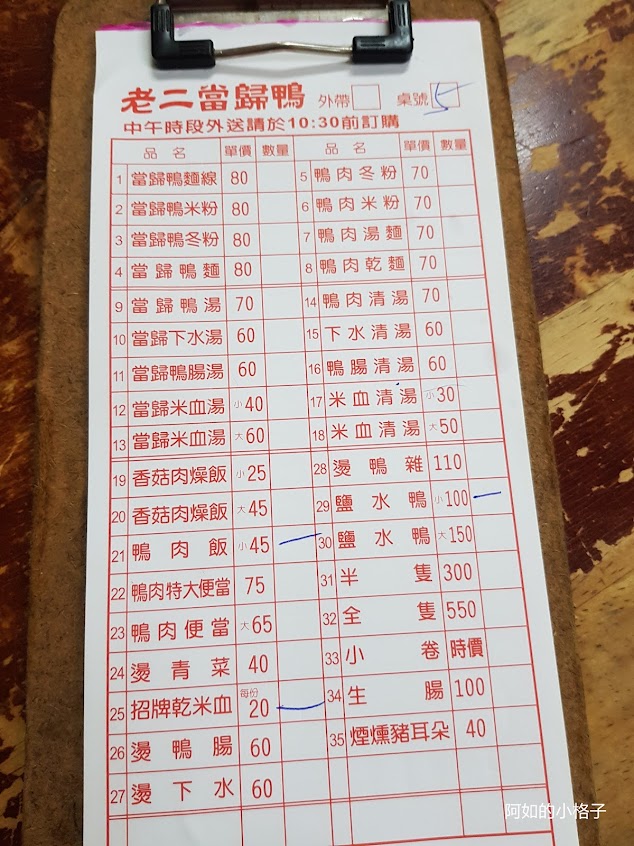 老二當歸鴨 外帶 桌號 5
中午時段外送請於10:30前訂購
品名 單價 數量 品名 單價 數量
1 當歸鴨麵線 80 5 鴨肉冬粉 70
2 當歸鴨米粉 80 6 鴨肉米粉 70
3 當歸鴨冬粉 80 7 鴨肉湯麵 70
4 當歸鴨麵 80 8 鴨肉乾麵 70
9 當歸鴨湯 70 14 鴨肉清湯 70
10 當歸下水湯 60 15 下水清湯 60
11 當歸鴨腸湯 60 16 鴨腸清湯 60
12 當歸米血湯 小40 17 米血清湯 小30
13 當歸米血湯 大60 18 米血清湯 大50
19 香菇肉燥飯 小25 28 燙鴨雜 110
20 香菇肉燥飯 大45 29 鹽水鴨 小100 一
21 鴨肉飯 小45 一 30 鹽水鴨 大150
22 鴨肉特大便當 75 31 半隻 300
23 鴨肉便當 大65 32 全隻 550
24 燙青菜 40 33 小卷 時價
25 招牌乾米血 每份20 一 34 生腸 100
26 燙鴨腸 60 35 煙燻豬耳朵 40
27 燙下水 60
阿如的小格子